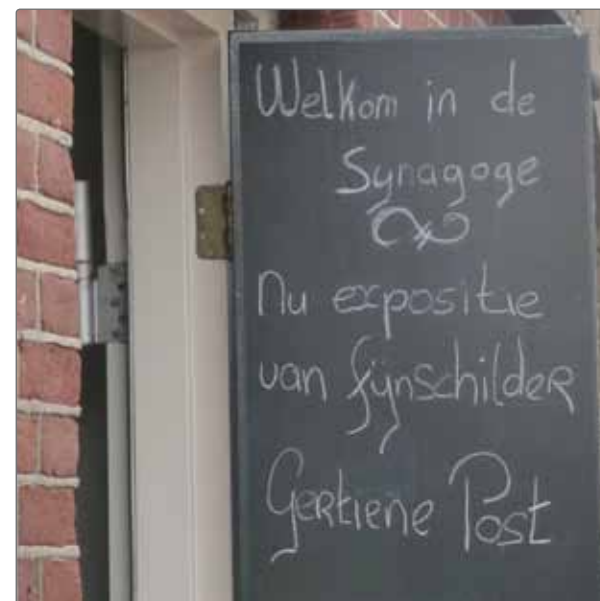 Welkom in de
Synagoge
Nu expositie
van fijnschilder
Gertiene Post